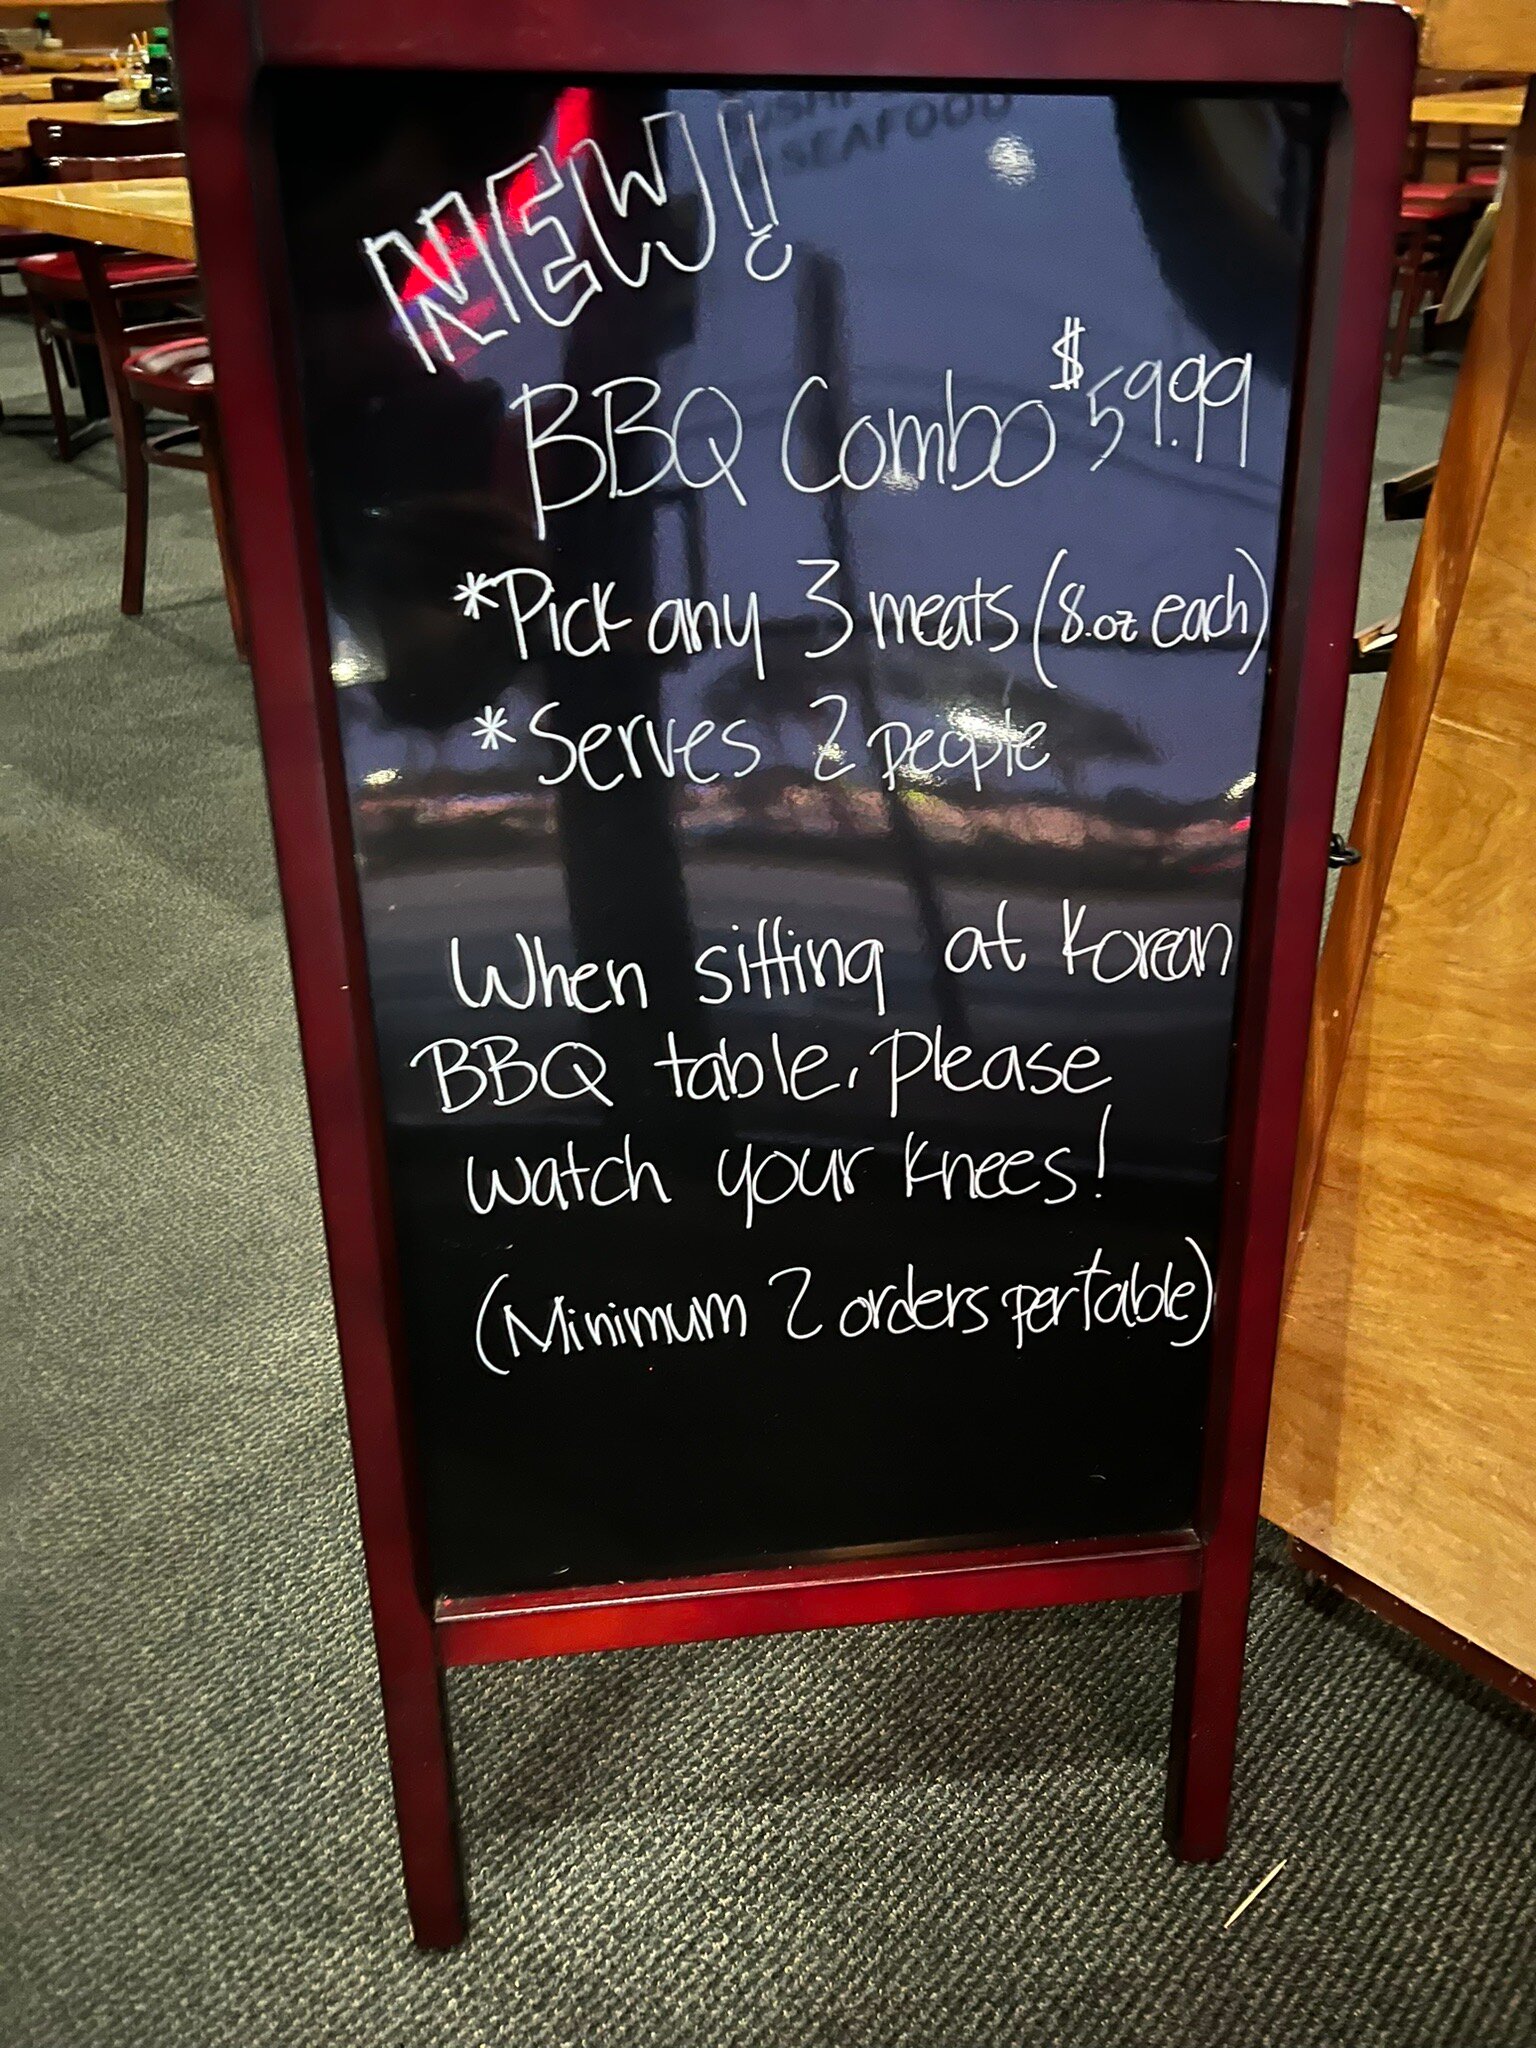 SEAFOOD
NEW!
BBQ Combo $59.99
*Pick any 3 meats (8.oz each)
*Serves 2 people
When sitting at Korean
BBQ table, please
watch your knees!
(Minimum 2 orders per table)